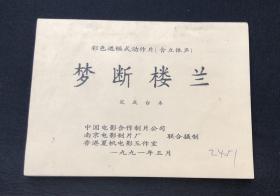 彩色遮幅式动作片(含立体声)
梦断楼兰
完成台本
中国电影合作制片公司
南京电影制片厂 联合摄制
香港夏帆电影工作室
一九九一年三月
2451